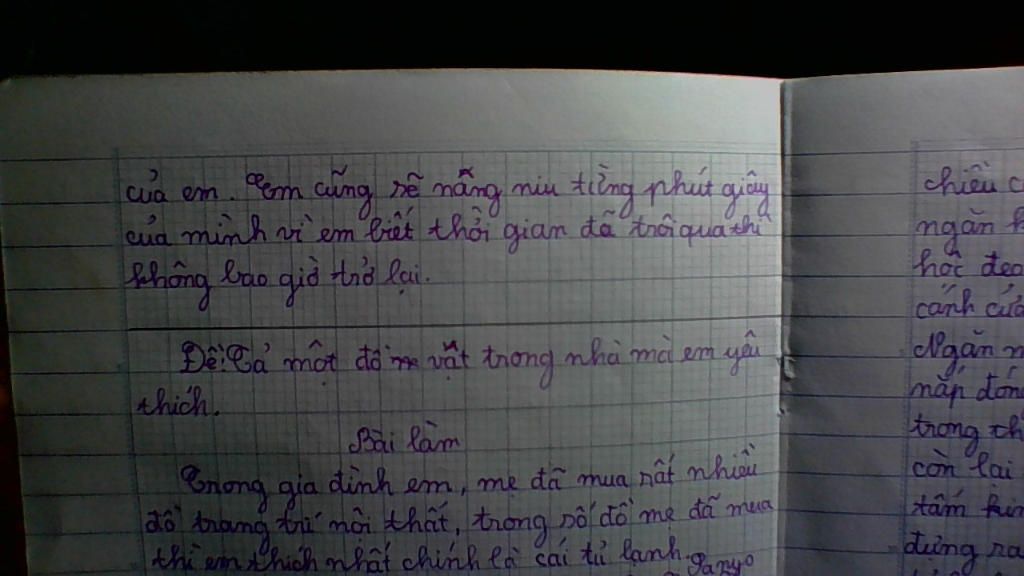 của em. Em cũng sẽ nâng niu từng phút giây
của mình vì em biết thời gian đã trôi qua thì
không bao giờ trở lại.
Đề: Tả một đồ vật trong nhà mà em yêu
thích.
Bài làm
Trong gia đình em, mẹ đã mua rất nhiều
đồ trang trí nội thất, trong số đồ mẹ đã mua
thì em thích nhất chính là cái tủ lạnh
chiều
ngăn
hốc đeo
cánh cửa
Ngăn
nắp đón
trong
còn lại
tấm
đứng ra